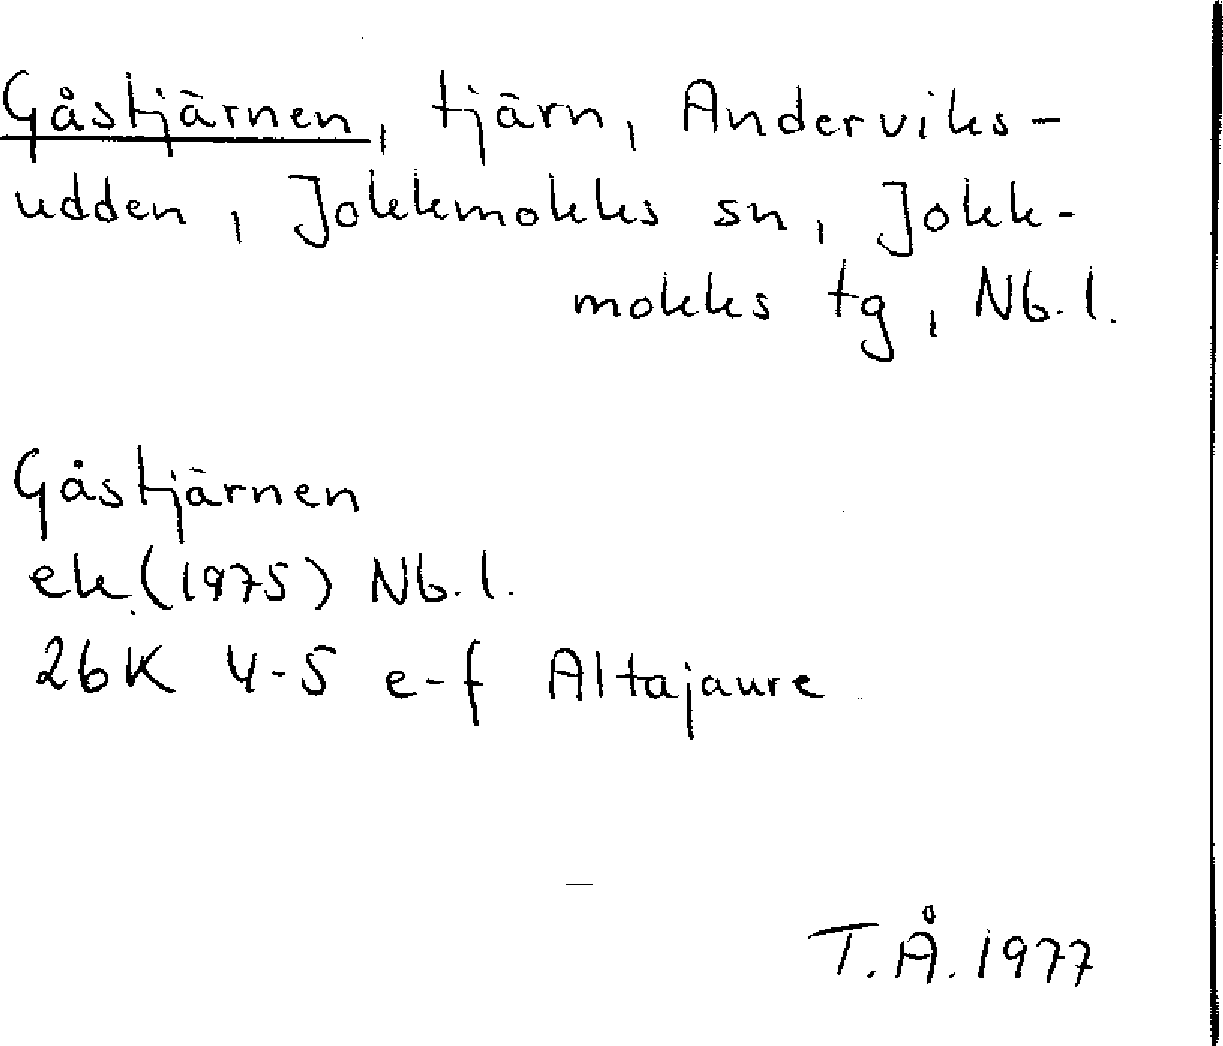 Gåstjärnen, tjärn, Anderviks-
udden, Jokkmokks sn, Jokk-
mokks tg, Nb. l.
Gåstjärnen
ek. (1975) Nb. l.
26K 4-5 e-f Altajaure
T. Å. 1977